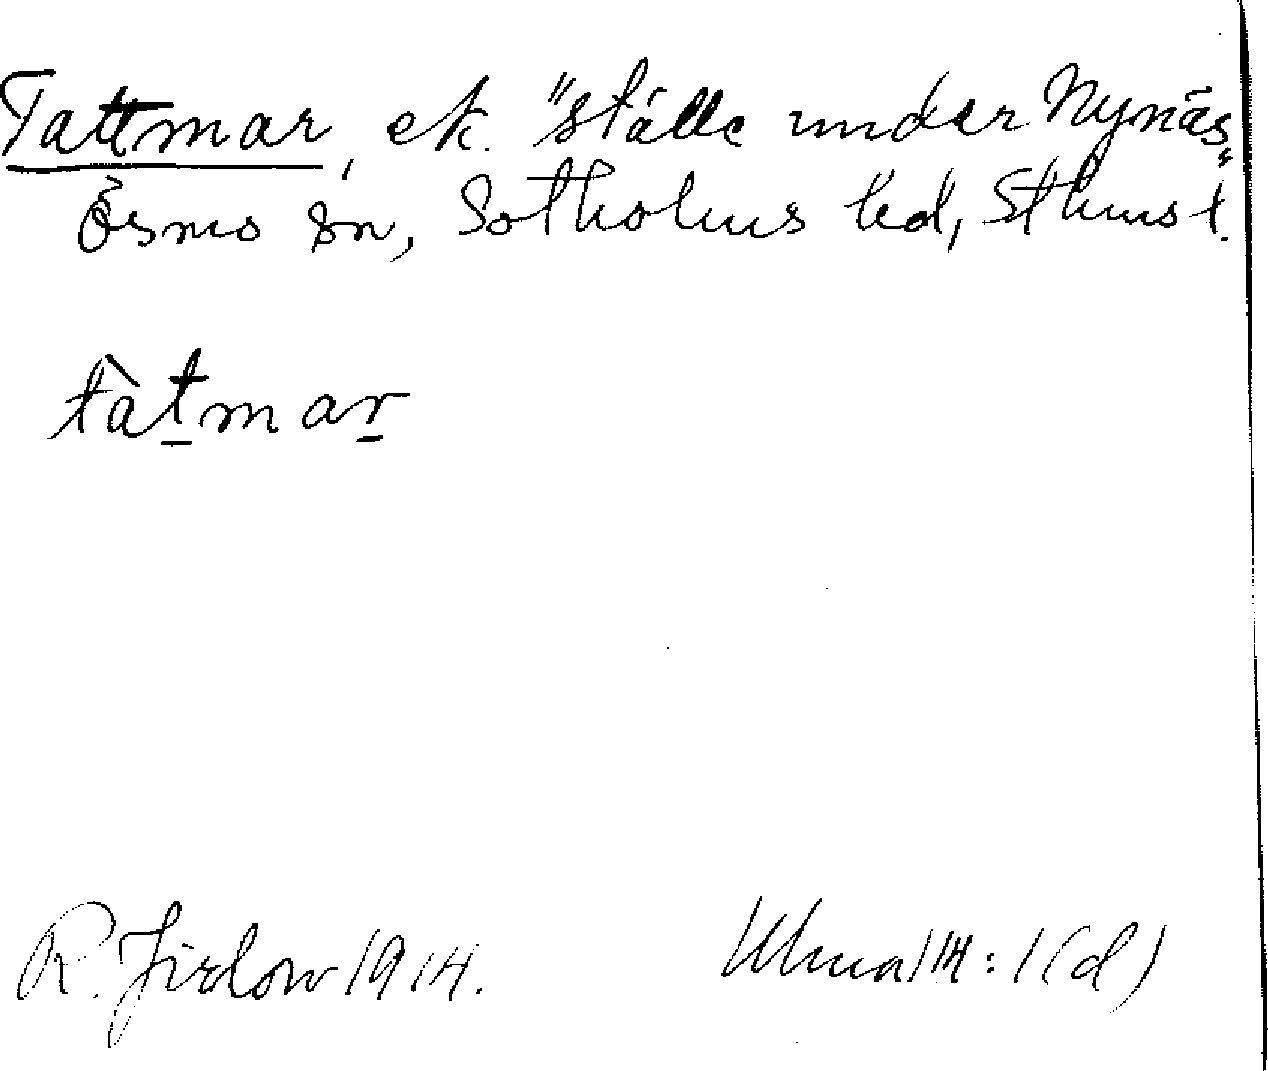 Tattmar, ek. "ställe under Nynäs"
Ösmo sn, Sotholms hd, Sthms l.
tàtmar
R. Jirlow 1914.
Ulma 114:1(d)